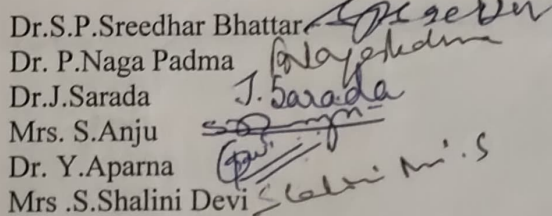 Dr.S.P.Sreedhar Bhattar
Dr. P.Naga Padma
Dr.J.Sarada J.Sarada
Mrs. S.Anju
Dr. Y.Aparna
Mrs .S.Shalini Devi